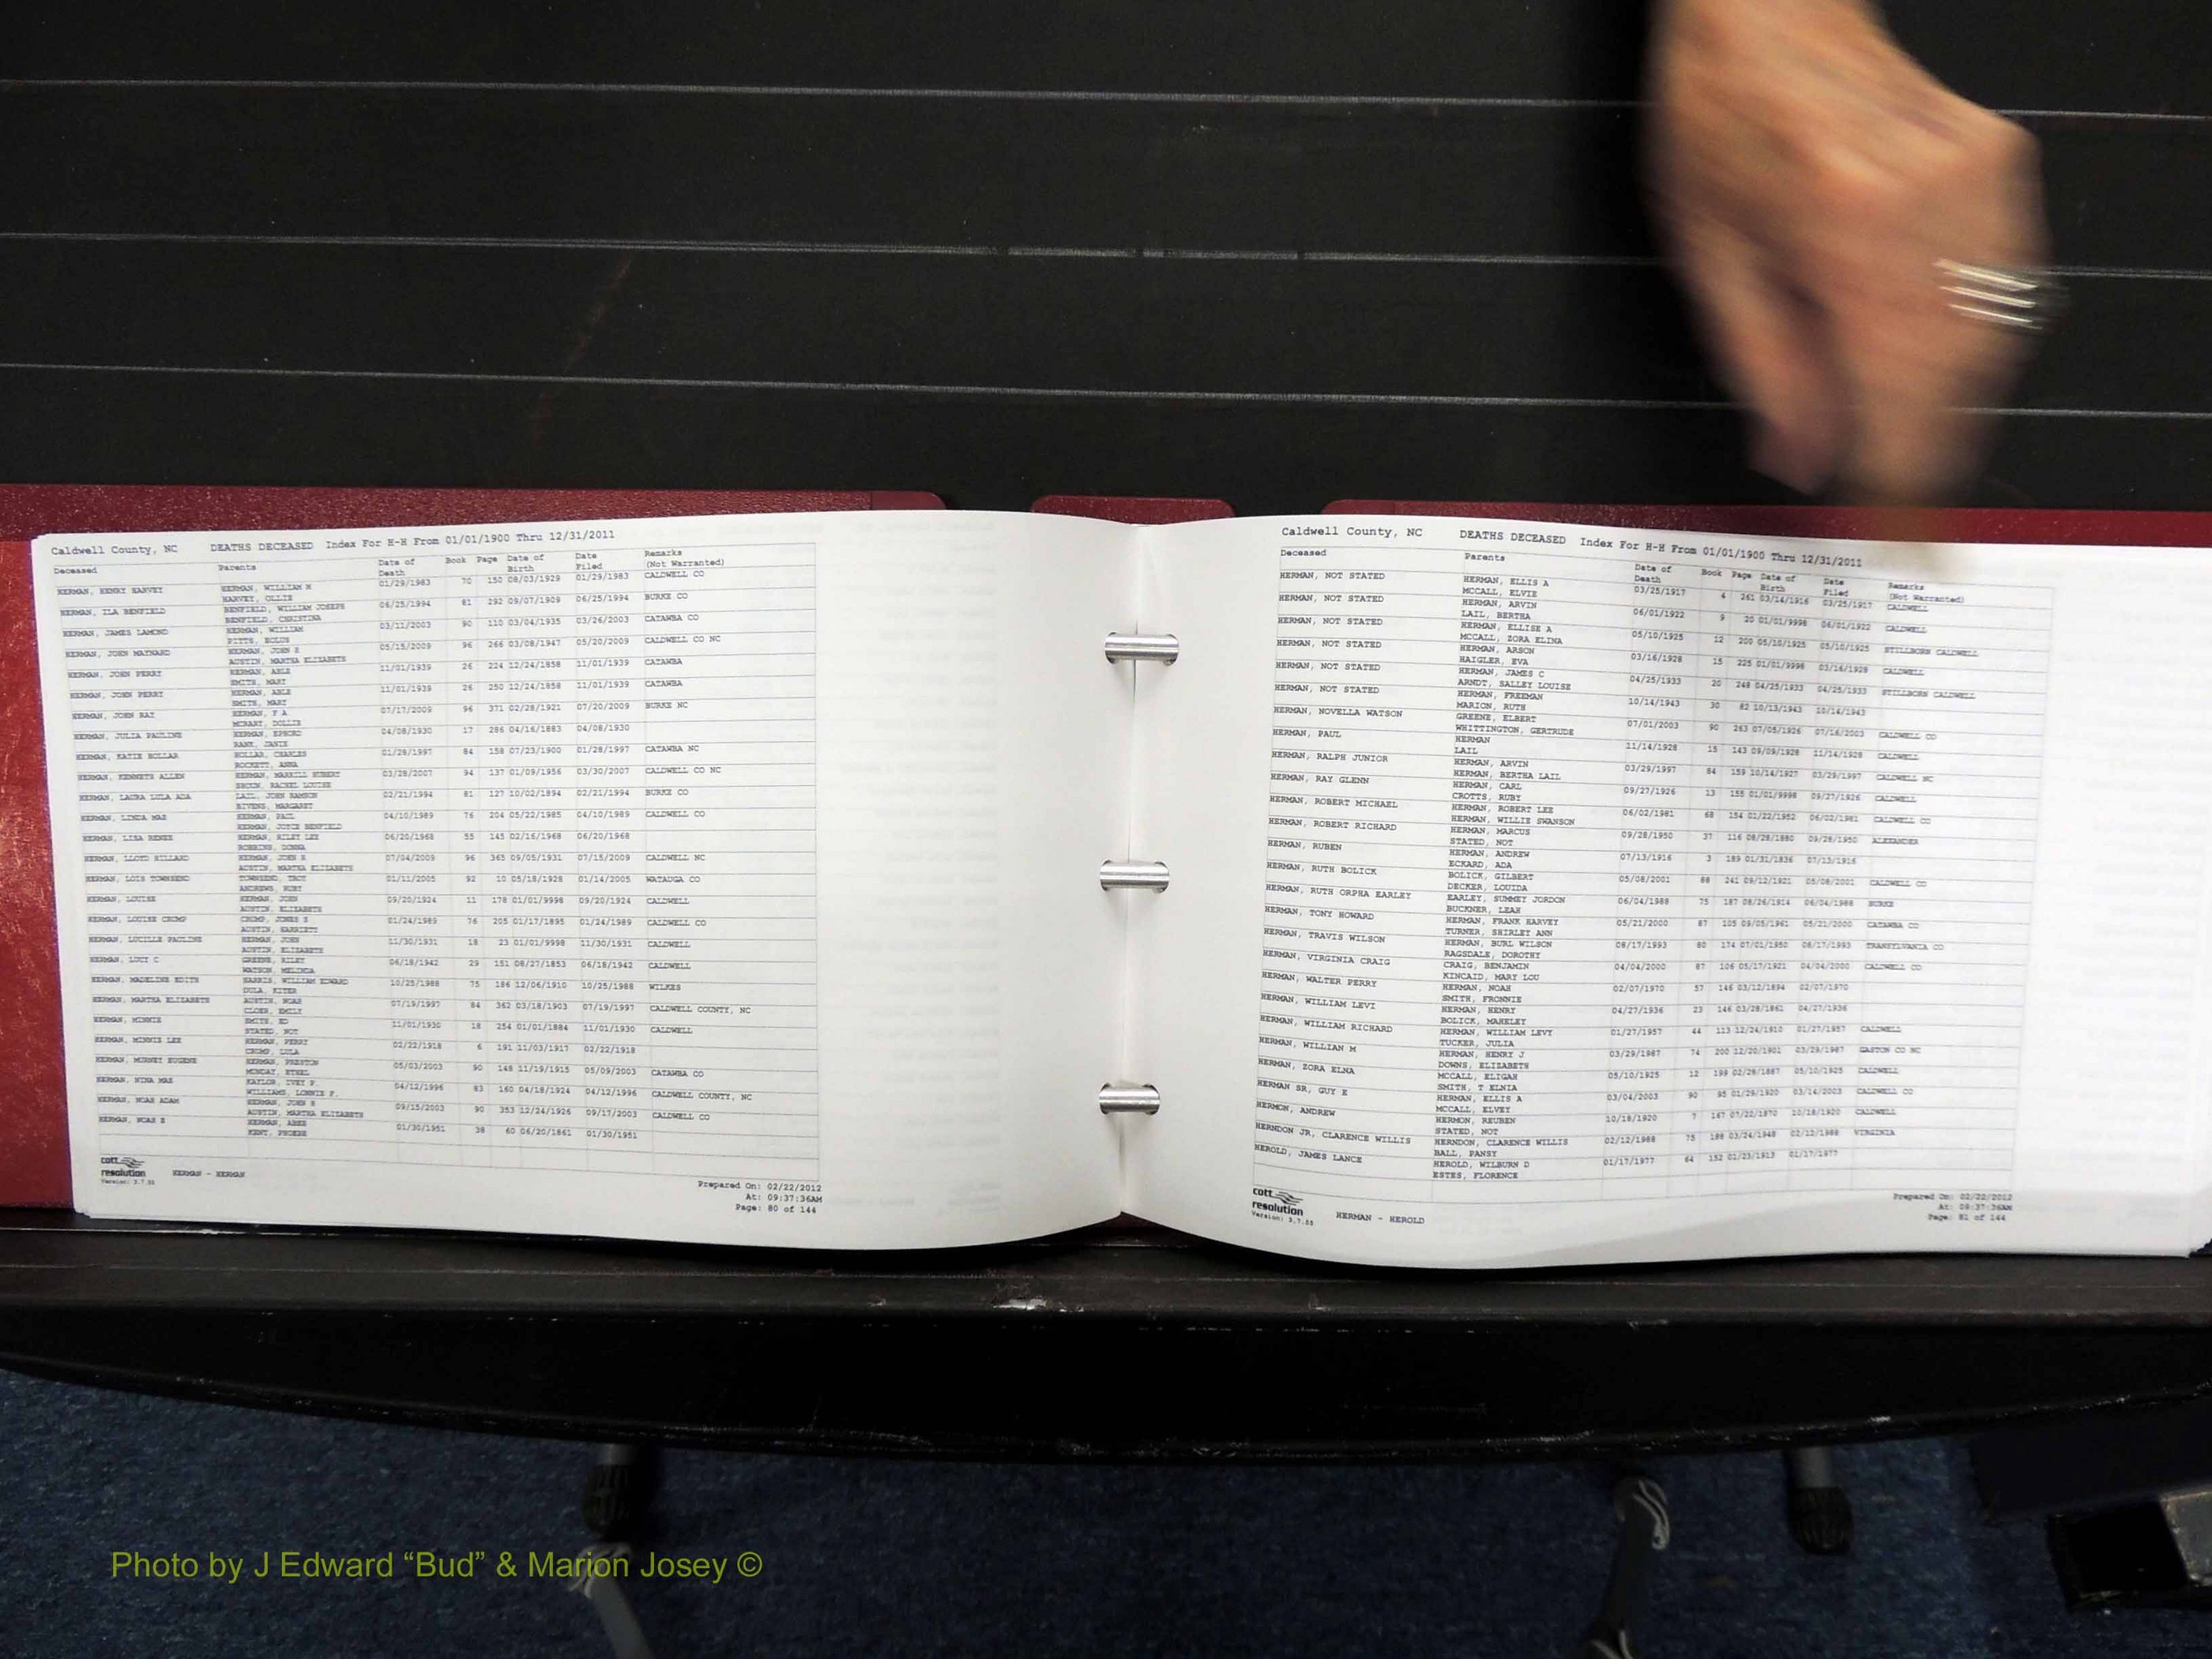 Caldwell County, NC DEATHS DECEASED Index For H-H From 01/01/1900 Thru 12/31/2011
Deceased Parents Date of Death Book Page Date of Birth Date Filed Remarks (Not Warranted)
HERMAN, HENRY HARVEY HERMAN, WILLIAM M 01/29/1983 70 150 08/03/1929 01/29/1983 CALDWELL CO
HARVEY, OLLIE
HERMAN, ILA BENFIELD BENFIELD, WILLIAM JOSEPH 06/25/1994 81 292 09/07/1909 06/25/1994 BURKE CO
BENFIELD, CHRISTINA
HERMAN, JAMES LAMOND HERMAN, WILLIAM 03/11/2003 90 110 03/04/1935 03/26/2003 CATAWBA CO
PITTS, EOLUS
HERMAN, JOHN MAYNARD HERMAN, JOHN E 05/15/2009 96 266 03/08/1947 05/20/2009 CALDWELL CO NC
AUSTIN, MARTHA ELIZABETH
HERMAN, JOHN PERRY HERMAN, ABLE 11/01/1939 26 224 12/24/1858 11/01/1939 CATAWBA
SMITH, MARY
HERMAN, JOHN PERRY HERMAN, ABLE 11/01/1939 26 250 12/24/1858 11/01/1939 CATAWBA
SMITH, MARY
HERMAN, JOHN RAY HERMAN, F A 07/17/2009 96 371 02/28/1921 07/20/2009 BURKE NC
DOLLIE
HERMAN, JULIA PAULINE HERMAN, 04/08/1930 17 286 04/16/1883 04/08/1930
JANIE
HERMAN, KATIE HOLLAR HOLLAR, CHARLES 01/28/1997 84 158 07/23/1900 01/28/1997 CATAWBA NC
ROCKETT, ANNA
HERMAN, KENNETH ALLEN HERMAN, HUBERT 03/28/2007 94 137 01/09/1956 03/30/2007 CALDWELL CO NC
RACHEL LOUISE
HERMAN, LAURA LULA ADA LAIL, JOHN RANSOM 02/21/1994 81 127 10/02/1894 02/21/1994 BURKE CO
BIVENS, MARGARET
HERMAN, LINDA MAE HERMAN, PAUL 04/10/1989 76 204 05/22/1985 04/10/1989 CALDWELL CO
HERMAN, JOYCE BENFIELD
HERMAN, LISA RENEE HERMAN, RILEY LEE 06/20/1968 55 145 02/16/1968 06/20/1968
ROBBINS, DONNA
HERMAN, LLOYD HERMAN, JOHN E 07/04/2009 96 365 09/05/1931 07/15/2009 CALDWELL NC
AUSTIN, MARTHA ELIZABETH
HERMAN, LOIS TOWNSEND TOWNSEND, TROY 01/11/2005 92 10 05/18/1928 01/14/2005 WATAUGA CO
ANDREWS, RUBY
HERMAN, LOUISE HERMAN, JOHN 09/20/1924 11 178 01/01/9998 09/20/1924 CALDWELL
AUSTIN, ELIZABETH
HERMAN, LOUISE CRUMP CRUMP, JONES 01/24/1989 76 205 01/17/1895 01/24/1989 CALDWELL CO
AUSTIN, HARRIETT
HERMAN, LUCILLE PAULINE HERMAN, JOHN 11/30/1931 18 23 01/01/9998 11/30/1931 CALDWELL
AUSTIN, ELIZABETH
HERMAN, LUCY C GREENE, RILEY 06/18/1942 29 151 08/27/1853 06/18/1942 CALDWELL
WATSON, MELINDA
HERMAN, MADELINE EDITH HARRIS, WILLIAM EDWARD 10/25/1988 75 186 12/06/1910 10/25/1988 WILKES
DULA,
HERMAN, MARTHA ELIZABETH AUSTIN, NOAH 07/19/1997 84 362 03/18/1903 07/19/1997 CALDWELL COUNTY, NC
CLOER, EMILY
HERMAN, MINNIE SMITH, ED 11/01/1930 18 254 01/01/1884 11/01/1930 CALDWELL
STATED, NOT
HERMAN, MINNIE LEE HERMAN, PERRY 02/22/1918 6 191 11/03/1917 02/22/1918
CRUMP, LULA
HERMAN, MURNEY EUGENE HERMAN, PRESTON 05/03/2003 90 148 11/19/1915 05/09/2003 CATAWBA CO
MUNDAY, ETHEL
HERMAN, NINA MAE KAYLOR, IVEY P. 04/12/1996 83 160 04/18/1924 04/12/1996 CALDWELL COUNTY, NC
WILLIAMS, LONNIE F.
HERMAN, NOAH ADAM HERMAN, JOHN E 09/15/2003 90 353 12/24/1926 09/17/2003 CALDWELL CO
AUSTIN, MARTHA ELIZABETH
HERMAN, NOAH E HERMAN, ABEE 01/30/1951 38 60 06/20/1861 01/30/1951
KENT, PHOEBE
cott resolution
Version: 3.7.55
HERMAN - HERMAN
Prepared On: 02/22/2012
At: 09:37:36AM
Page: 80 of 144
Caldwell County, NC DEATHS DECEASED Index For H-H From 01/01/1900 Thru 12/31/2011
Deceased Parents Date of Death Book Page Date of Birth Date Filed Remarks (Not Warranted)
HERMAN, NOT STATED HERMAN, ELLIS A 03/25/1917 4 261 03/14/1916 03/25/1917 CALDWELL
MCCALL, ELVIE
HERMAN, NOT STATED HERMAN, ARVIN 06/01/1922 9 20 01/01/9998 06/01/1922 CALDWELL
LAIL, BERTHA
HERMAN, NOT STATED HERMAN, ELLISE A 05/10/1925 12 200 05/10/1925 05/10/1925 STILLBORN CALDWELL
MCCALL, ZORA ELINA
HERMAN, NOT STATED HERMAN, ARSON 03/16/1928 15 225 01/01/9998 03/16/1928 CALDWELL
HAIGLER, EVA
HERMAN, NOT STATED HERMAN, JAMES C 04/25/1933 20 248 04/25/1933 04/25/1933 STILLBORN CALDWELL
ARNDT, SALLEY LOUISE
HERMAN, NOT STATED HERMAN, FREEMAN 10/14/1943 30 82 10/13/1943 10/14/1943
MARION, RUTH
HERMAN, NOVELLA WATSON GREENE, ELBERT 07/01/2003 90 263 07/05/1926 07/16/2003 CALDWELL CO
WHITTINGTON, GERTRUDE
HERMAN, PAUL HERMAN 11/14/1928 15 143 09/09/1928 11/14/1928 CALDWELL
LAIL
HERMAN, RALPH JUNIOR HERMAN, ARVIN 03/29/1997 84 159 10/14/1927 03/29/1997 CALDWELL NC
HERMAN, BERTHA LAIL
HERMAN, RAY GLENN HERMAN, CARL 09/27/1926 13 155 01/01/9998 09/27/1926 CALDWELL
CROTTS, RUBY
HERMAN, ROBERT MICHAEL HERMAN, ROBERT LEE 06/02/1981 68 154 01/22/1952 06/02/1981 CALDWELL CO
HERMAN, WILLIE SWANSON
HERMAN, ROBERT RICHARD HERMAN, MARCUS 09/28/1950 37 116 08/28/1880 09/28/1950 ALEXANDER
STATED, NOT
HERMAN, RUBEN HERMAN, ANDREW 07/13/1916 3 189 01/31/1836 07/13/1916
ECKARD, ADA
HERMAN, RUTH BOLICK BOLICK, GILBERT 05/08/2001 88 241 09/12/1921 05/08/2001 CALDWELL CO
DECKER, LOUIDA
HERMAN, RUTH ORPHA EARLEY EARLEY, SUMMEY JORDON 06/04/1988 75 187 08/26/1914 06/04/1988 BURKE
BUCKNER, LEAH
HERMAN, TONY HOWARD HERMAN, FRANK HARVEY 05/21/2000 87 105 09/05/1961 05/21/2000 CATAWBA CO
TURNER, SHIRLEY ANN
HERMAN, TRAVIS WILSON HERMAN, BURL WILSON 08/17/1993 80 174 07/01/1950 08/17/1993 TRANSYLVANIA CO
RAGSDALE, DOROTHY
HERMAN, VIRGINIA CRAIG CRAIG, BENJAMIN 04/04/2000 87 106 05/17/1921 04/04/2000 CALDWELL CO
KINCAID, MARY LOU
HERMAN, WALTER PERRY HERMAN, NOAH 02/07/1970 57 146 03/12/1894 02/07/1970
SMITH, FRONNIE
HERMAN, WILLIAM LEVI HERMAN, HENRY 04/27/1936 23 146 03/28/1861 04/27/1936
BOLICK, MAHELEY
HERMAN, WILLIAM RICHARD HERMAN, WILLIAM LEVY 01/27/1957 44 113 12/24/1910 01/27/1957 CALDWELL
TUCKER, JULIA
HERMAN, WILLIAM M HERMAN, HENRY J 03/29/1987 74 200 12/20/1901 03/29/1987 GASTON CO NC
DOWNS, ELIZABETH
HERMAN, ZORA ELNA MCCALL, ELIGAH 05/10/1925 12 199 02/28/1887 05/10/1925 CALDWELL
SMITH, T ELNIA
HERMAN SR, GUY E HERMAN, ELLIS A 03/04/2003 90 95 01/29/1920 03/14/2003 CALDWELL CO
MCCALL, ELVEY
HERMON, ANDREW HERMON, REUBEN 10/18/1920 7 167 07/22/1870 10/18/1920 CALDWELL
STATED, NOT
HERNDON JR, CLARENCE WILLIS HERNDON, CLARENCE WILLIS 02/12/1988 75 188 03/24/1948 02/12/1988 VIRGINIA
BALL, PANSY
HEROLD, JAMES LANCE HEROLD, WILBURN D 01/17/1977 64 152 01/23/1913 01/17/1977
ESTES, FLORENCE
cott resolution
Version: 3.7.55
HERMAN - HEROLD
Prepared On: 02/22/2012
At: 09:37:36AM
Page: 81 of 144
Photo by J Edward “Bud” & Marion Josey ©